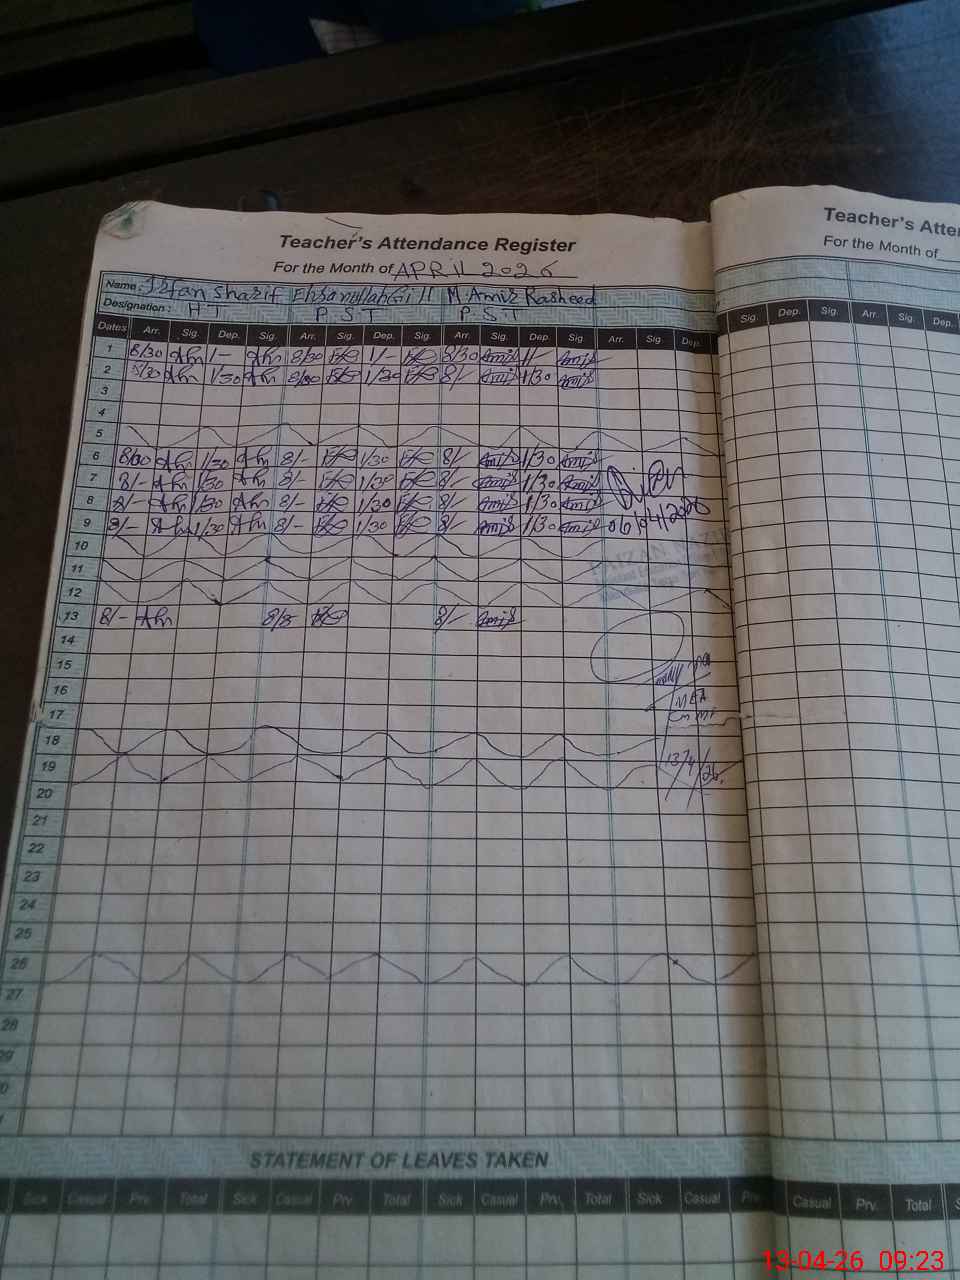 Teacher's Attendance Register
For the Month of APRIL 2026
Name: Irfan Sharif Ehsanullah Gill M. Amir Rasheed
Designation: HT P.S.T P.S.T
Dates Arr. Sig. Dep. Sig. Arr. Sig. Dep. Sig. Arr. Sig. Dep. Sig. Arr. Sig. Dep.
1 8/30 1/- 8/30 1/- 8/30 Amir 1/- Amir
2 8/30 1/30 8/30 1/30 8/- Amir 1/30 Amir
3
4
5
6 8/30 1/30 8/- 1/30 8/- Amir 1/30 Amir
7 8/- 1/30 8/- 1/30 8/- Amir 1/30 Amir
8 8/- 1/30 8/- 1/30 8/- Amir 1/30 Amir
9 8/- 1/30 8/- 1/30 8/- Amir 1/30 Amir 06/04/2026
10
11
12
13 8/- 8/- 8/- Amir
14
15
16
MEA
17
18
19
13/4/26
20
21
22
23
24
25
26
27
28
29
STATEMENT OF LEAVES TAKEN
Sick Casual Prv. Total Sick Casual Prv. Total Sick Casual Prv. Total Sick Casual Prv.
Teacher's Atten
For the Month of
Sig. Dep. Sig. Arr. Sig. Dep.
Casual Prv. Total S
13-04-26 09:23